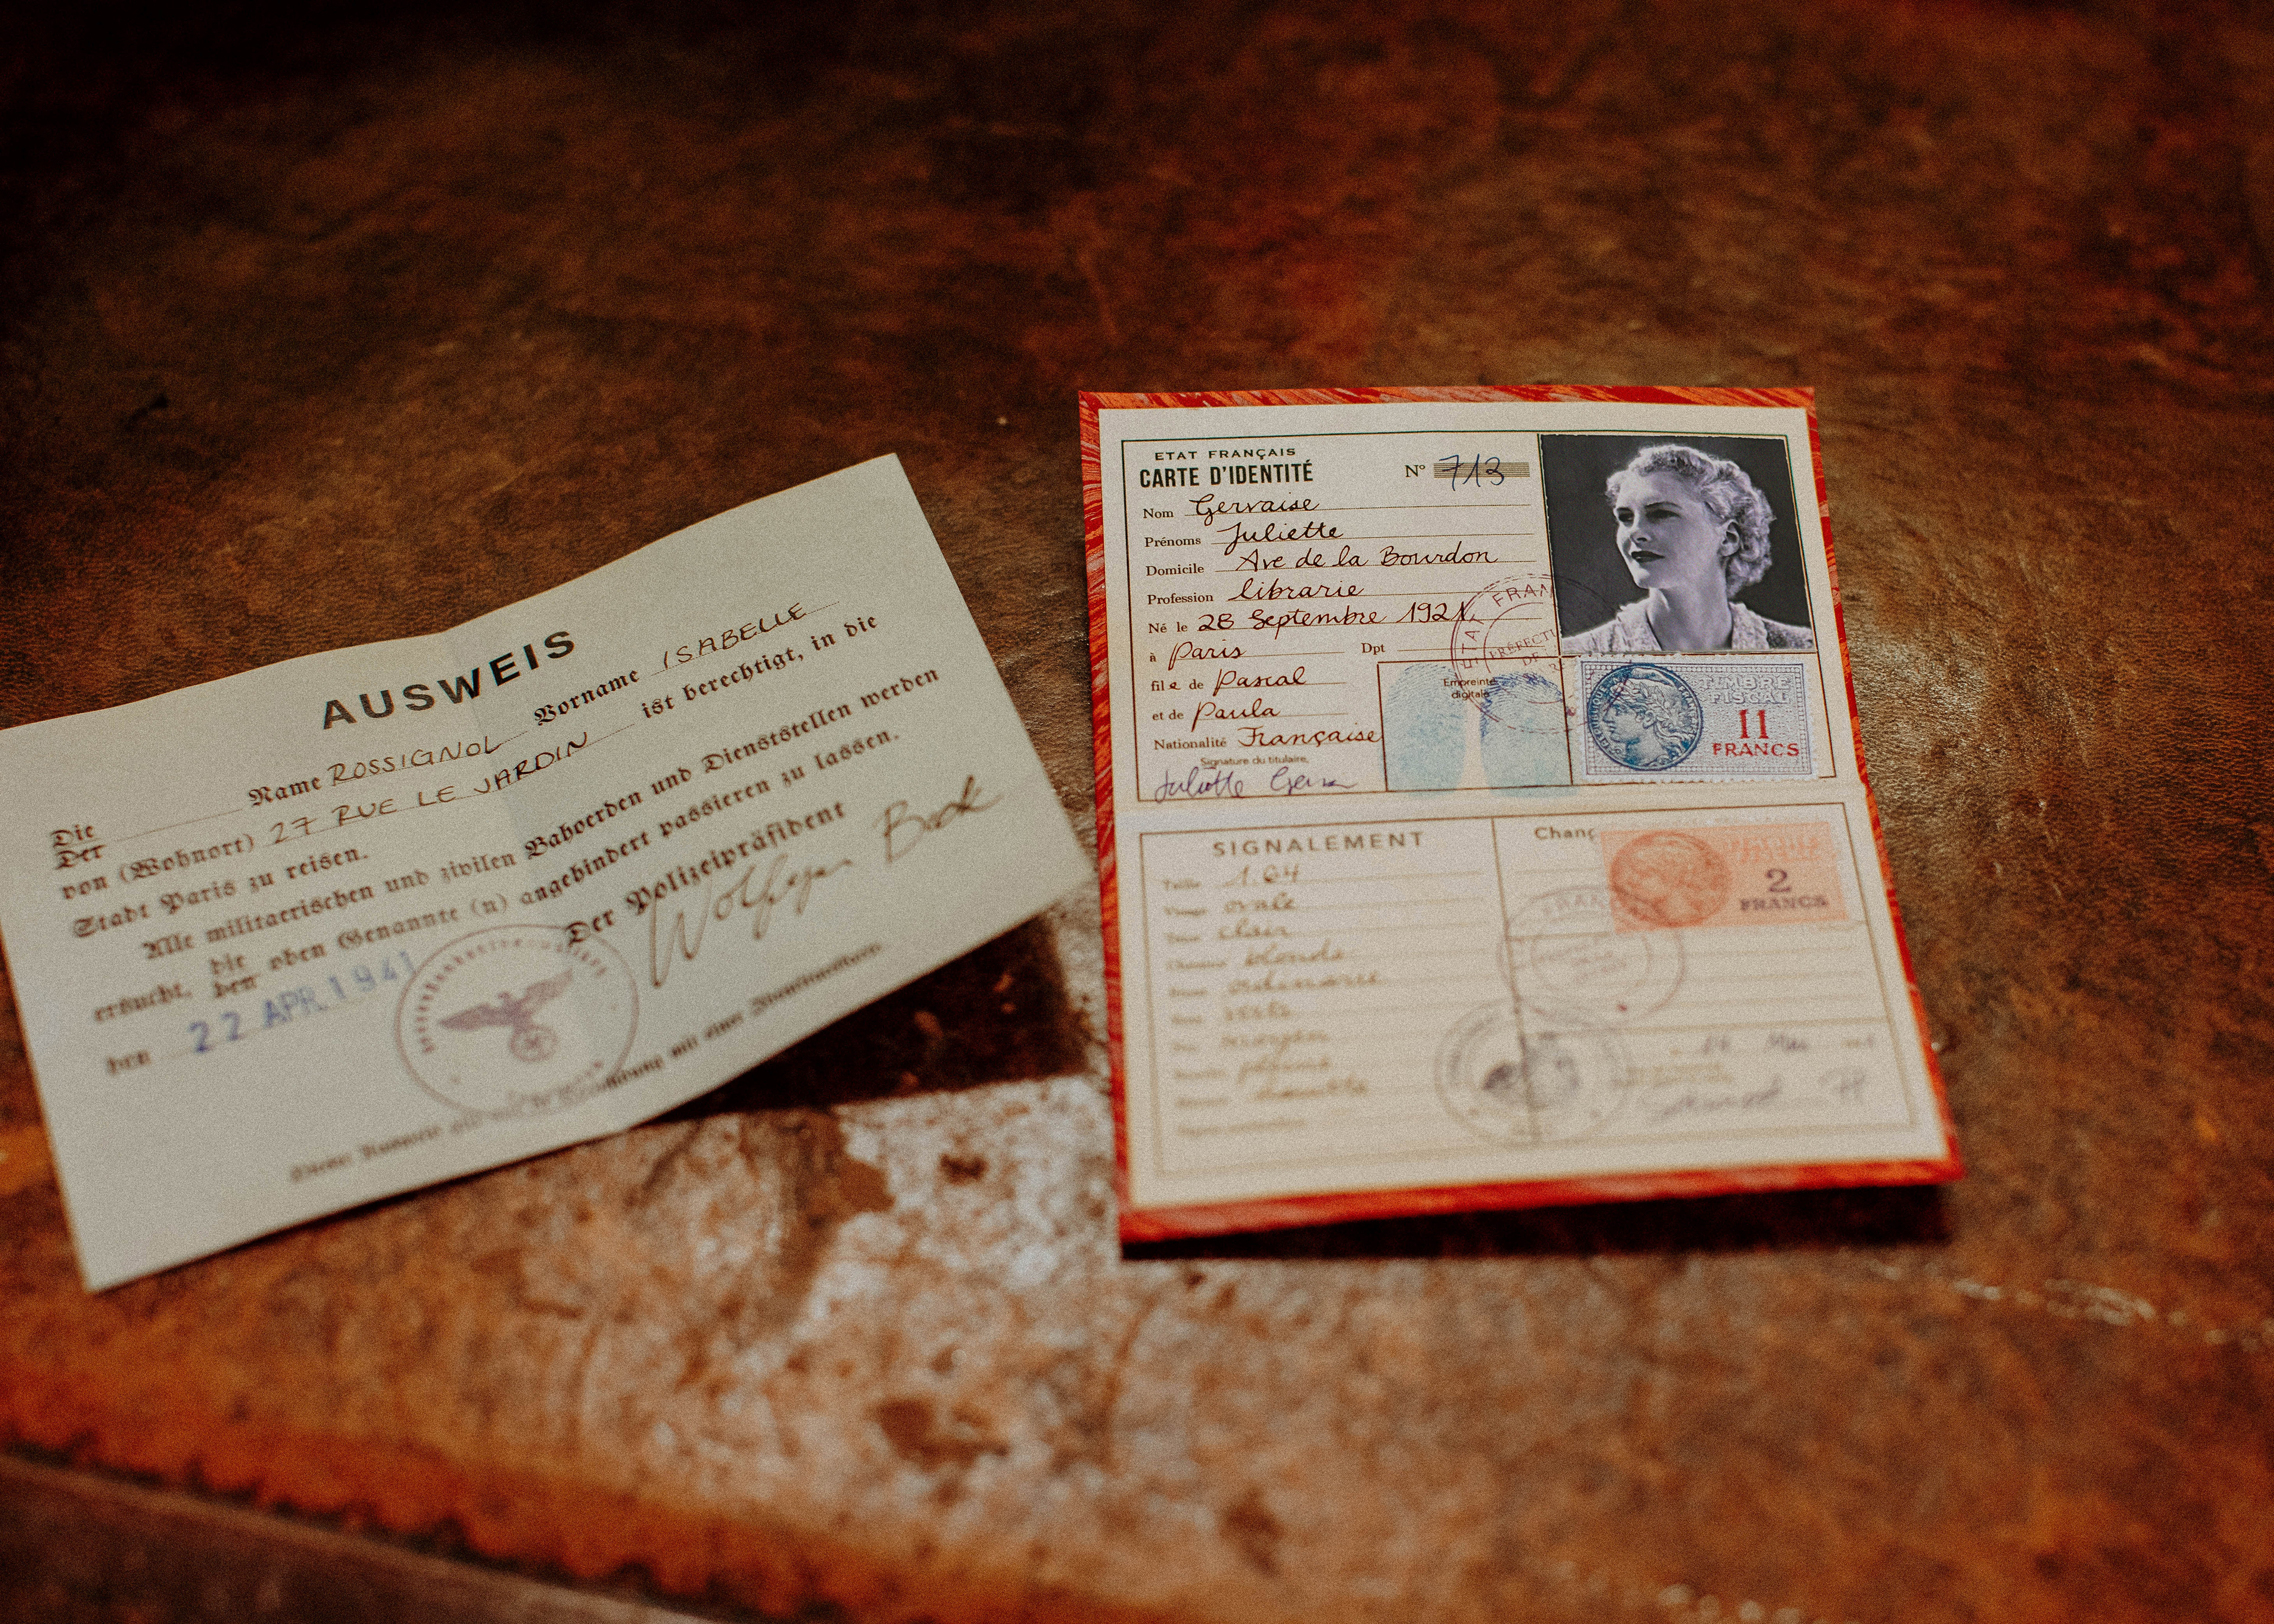 AUSWEIS
Die
Der
Name ROSSIGNOL Vorname ISABELLE
von (Wohnort) 27 RUE LE JARDIN ist berechtigt, in die
Stadt Paris zu reisen.
Alle militaerischen und zivilen Bahoerden und Dienststellen werden
ersucht, die
den
oben Genannte (n) angehindert passieren zu lassen.
Der Polizeipräsident
Wolfgan Beck
den 22 APR. 1941
ETAT FRANÇAIS
CARTE D'IDENTITÉ
N° 713
Nom Gervaise
Prénoms Juliette
Domicile Ave de la Bourdon
Profession librarie
Né le 28 Septembre 1921
à Paris Dpt
file de Pascal
et de Paula
Nationalité Française
Signature du titulaire,
Juliette
Empreinte
digitale
TIMBRE
FISCAL
11
FRANCS
SIGNALEMENT
Taille 1.64
Visage ovale
Teint clair
blonde
Chang
2
FRANCS